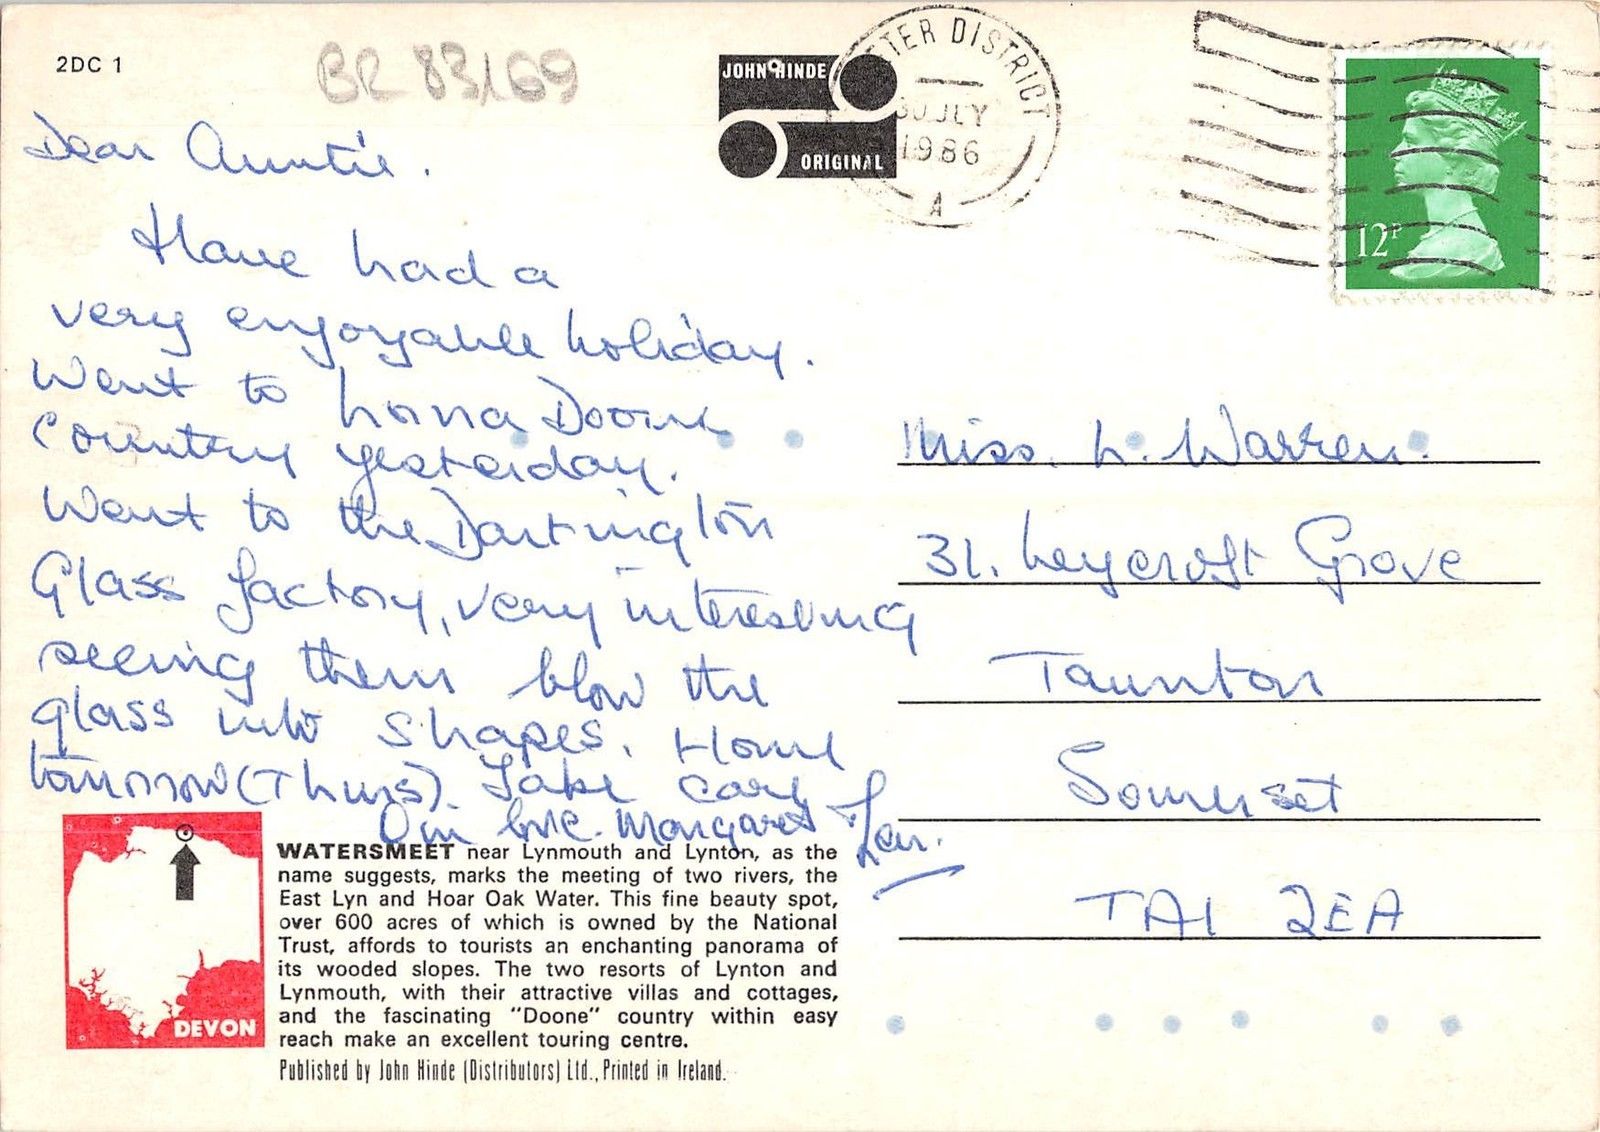 2DC 1
BR 83169
JOHN HINDE
ORIGINAL
TER DISTRICT
30 JLY
1986
A
12P
Dear Auntie.
Have had a
very enjoyable holiday.
Went to Lorna Doone
Country yesterday.
Went to the Dartington
Glass factory, very interesting
seeing them blow the
glass into shapes. Home
tomorrow (Thurs). Take care
Our love. Margaret
Miss. L. Warren.
31. Leycroft Grove
Taunton
Somerset
TA1 2EA
DEVON
WATERSMEET near Lynmouth and Lynton, as the
name suggests, marks the meeting of two rivers, the
East Lyn and Hoar Oak Water. This fine beauty spot,
over 600 acres of which is owned by the National
Trust, affords to tourists an enchanting panorama of
its wooded slopes. The two resorts of Lynton and
Lynmouth, with their attractive villas and cottages,
and the fascinating "Doone" country within easy
reach make an excellent touring centre.
Published by John Hinde (Distributors) Ltd., Printed in Ireland.